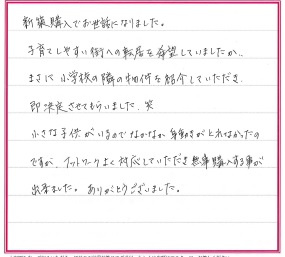 新築購入でお世話になりました。
子育てしやすい街への転居を希望していましたが、
まさに小学校の隣の物件を紹介していただき
即決定させてもらいました。笑
小さな子供がいるのでなかなか身動きがとれなかったの
ですが、フットワークよく対応していただき無事購入する事が
出来ました。ありがとうございました。